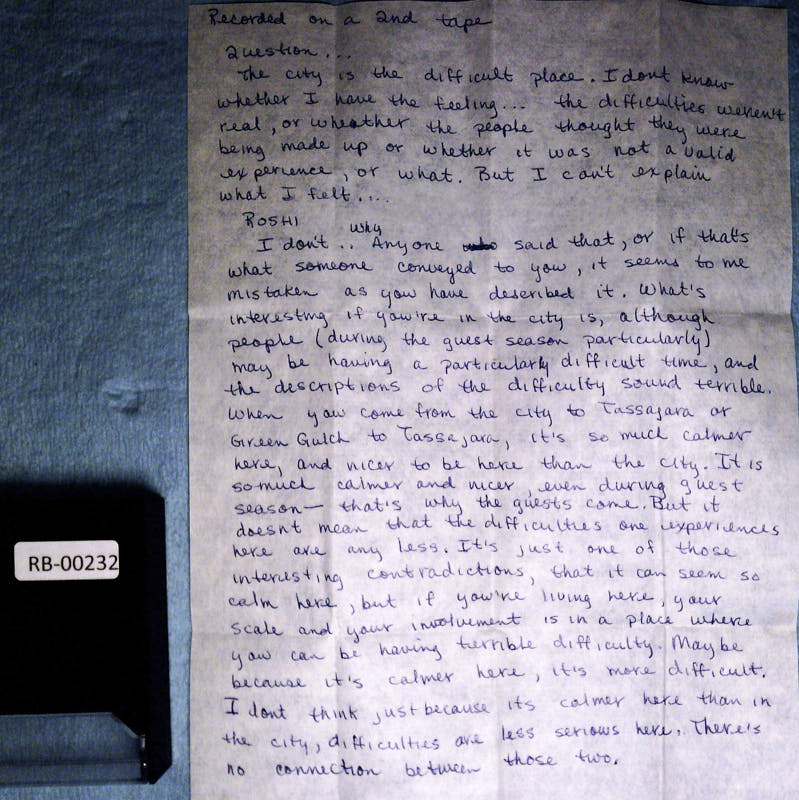 Recorded on a 2nd tape
Question...
The city is the difficult place. I dont know
whether I have the feeling... the difficulties weren't
real, or wheather the people thought they were
being made up or whether it was not a valid
experience, or what. But I can't explain
what I felt....
ROSHI
why
I don't.. Anyone who said that, or if that's
what someone conveyed to you, it seems to me
mistaken as you have described it. What's
interesting if you're in the city is, although
people (during the guest season particularly)
may be having a particularly difficult time, and
the descriptions of the difficulty sound terrible.
When you come from the city to Tassajara or
Green Gulch to Tassajara, it's so much calmer
here, and nicer to be here than the city. It is
so much calmer and nicer, even during guest
season— that's why the guests come. But it
doesnt mean that the difficulties one experiences
here are any less. It's just one of those
interesting contradictions, that it can seem so
calm here, but if you're living here, your
scale and your involvement is in a place where
you can be having terrible difficulty. Maybe
because it's calmer here, it's more difficult.
I dont think just because its calmer here than in
the city, difficulties are less serious here. There's
no connection between those two.
RB-00232